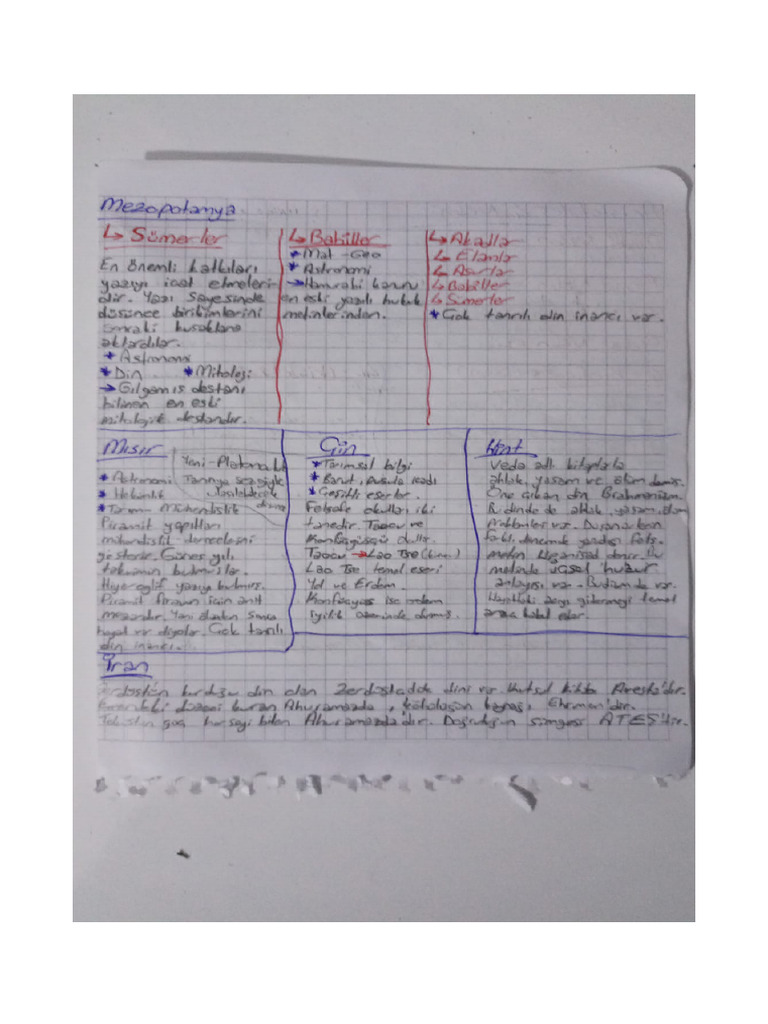 Mezopotamya
↳ Sümerler
En önemli katkıları
yazıyı icat etmeleri
dir. Yazı sayesinde
düşünce birikimlerini
sonraki kuşaklara
aktardılar.
* Astronomi
* Din * Mitoloji
→ Gılgamış destanı
bilinen en eski
mitolojik destandır.
↳ Babiller
* Mat - Geo
* Astronomi
→ Hamurabi kanunu
en eski yazılı hukuk
metinlerinden.
↳ Akadlar
↳ Elamlar
↳ Asurlar
↳ Babiller
↳ Sümerler
* Çok tanrılı din inancı var.
Mısır
Yeni-Platoncu
Tanrıya sezgiyle
* Astronomi
* Hekimlik
* Tarım Mühendislik
Piramit yapıları
mühendislik derecelerini
gösterir. Güneş yılı
takvimini bulmuşlar.
Hiyeroglif yazıyı bulmuş.
Piramit firavun için anıt
mezardır. Yani ölümden sonra
hayat var diyorlar. Çok tanrılı
din inancı.
Çin
* Tarımsal bilgi
* Barut, pusula icadı
* Çeşitli eserler.
Felsefe okulları iki
tanedir. Taocu ve
Konfüçyüsçü okullar.
Taocu → Lao Tse
Lao Tse temel eseri
Yol ve Erdem
Konfüçyüs ise erdem
iyilik üzerinde durmuş.
Hint
Veda adlı kitaplarla
ahlak, yaşam ve ölüm
Öne çıkan din Brahmanizm.
Budinde de ahlak, yaşam, ölüm
var.
metin Upanişad denir. Bu
metinde içsel "huzur"
anlayışı var. Budizmde var.
temel
amaç kabul eder.
İran
Zerdüştün kurduğu din olan Zerdüştlük dini var. Kutsal kitabı Avesta'dır.
Evrendeki düzeni kuran Ahuramazda, kötülüğün kaynağı Ehrimen'dir.
herşeyi bilen Ahuramazda'dır. Doğruluğun simgesi ATEŞ'tir.